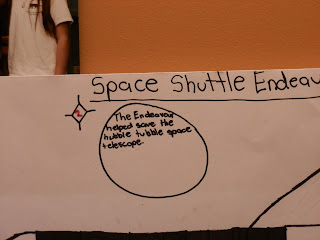 Space Shuttle Endeav
2
The Endeavour
helped save the
hubble tubble space
telescope.